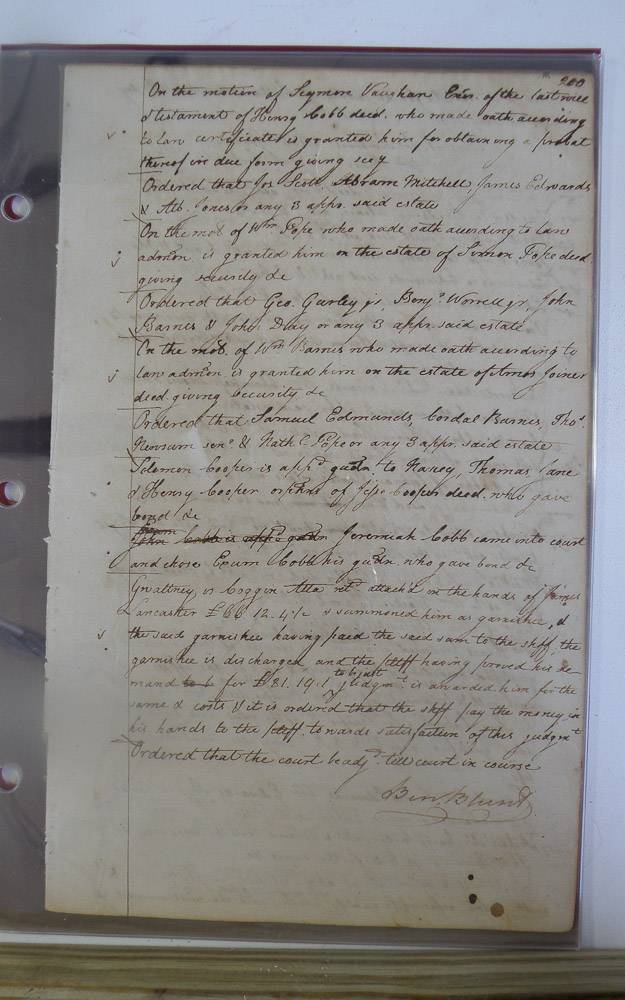 200
On the motion of Seymore Vaughan Exr. of the last will
& testament of Henry Cobb deced. who made oath according
to law certificate is granted him for obtaining a probat
thereof in due form giving secy
Ordered that Jos Scott, Abram Mitchell, James Edwards
& Alb. Jones or any 3 appr. said estate
On the mot. of Wm Pope who made oath according to law
admon. is granted him on the estate of Simon Pope deced
giving security &c
Ordered that Geo. Gurley jr, Benja. Worrell jr, John
Barnes & John Day or any 3 appr. said estate
On the mot. of Wm Barnes who made oath according to
law admon is granted him on the estate of Amos Joiner
deced giving security &c
Ordered that Samuel Edmunds, Cordal Barnes, Thos.
Newsum senr. & Nath C. Pope or any 3 appr. said estate
Solomon Cooper is appd. guardn. to Nancy, Thomas Jane
& Henry Cooper orphns of Jesse Cooper deced. who gave
bond &c
John Cobb is appd guardn Jeremiah Cobb came into court
and chose Exum Cobb his guardn. who gave bond &c
Gwaltney vs Coggin Atta. rtd. attach'd in the hands of James
Lancaster £66 12. 4½ & summoned him as garnishee, &
the said garnishee having paid the said sum to the shff, the
garnishee is discharged, and the pltff having proved his de
mand for £81. 19. 1 to be just judgmt. is awarded him for the
same & costs & it is ordered that the shff pay the money in
his hands to the pltff. towards satisfaction of this judgmt
Ordered that the court be adjd. till court in course
Ben. Blunt